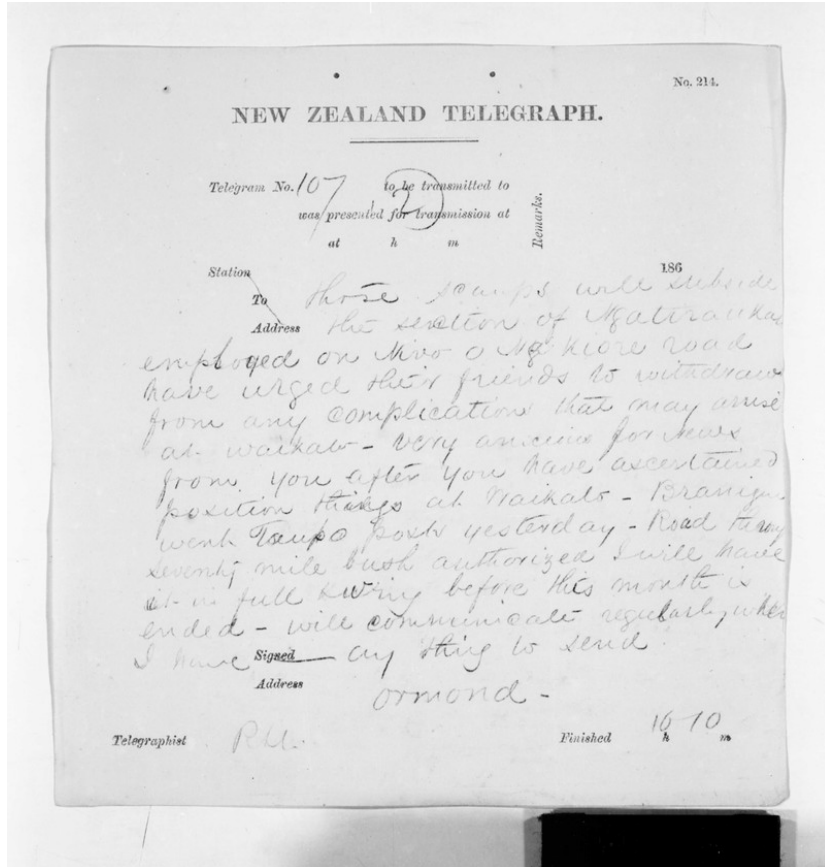 No. 214.
NEW ZEALAND TELEGRAPH.
Telegram No. 107 to be transmitted to
(2)
was presented for transmission at
at h m
Remarks.
Station 186
To those scamps will subside
Address the section of Ngatiraukawa
employed on Nivo o Ngakiore road
have urged their friends to withdraw
from any complication that may arise
at waikato - very anxious for news
from you after you have ascertained
position things at Waikato - Branigan
went Taupo posts yesterday - Road through
seventy mile bush authorized I will have
it in full swing before this month is
ended - will communicate regularly when
I have Signed any thing to send
Address
Ormond -
Telegraphist Finished 10 h 10 m